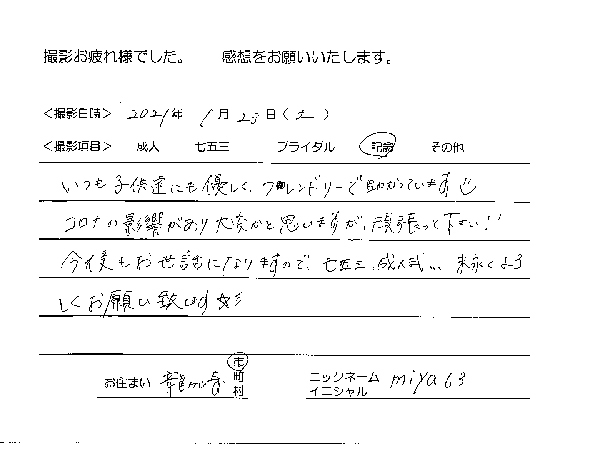 撮影お疲れ様でした。 感想をお願いいたします。
<撮影日時> 2021年 1月23日(土)
<撮影項目> 成人 七五三 ブライダル 記念 その他
いつも子供達にも優しく、フレンドリーで助かっています
コロナの影響があり大変かと思いますが、頑張って下さい!!
今後もお世話になりますので、七五三、成人式… 末永くよろ
しくお願い致します
お住まい 龍ヶ崎 市 町 村
ニックネーム イニシャル miya63